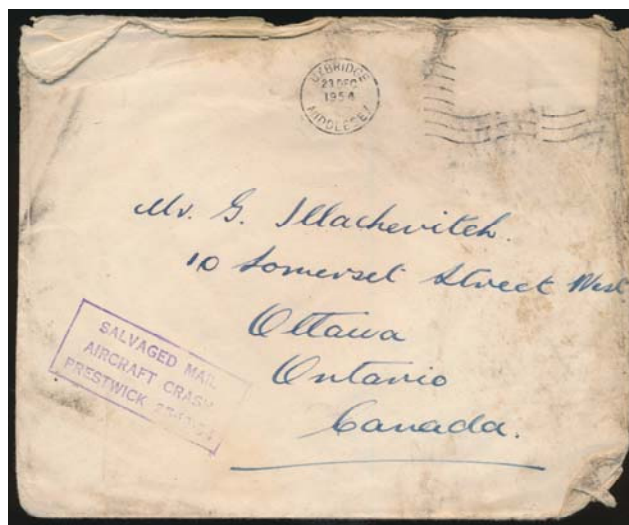 UXBRIDGE
23 DEC
1954
MIDDLESEX
Mr. G. Illachevitch.
10 Somerset Street West
Ottawa
Ontario
Canada.
SALVAGED MAIL
AIRCRAFT CRASH
PRESTWICK